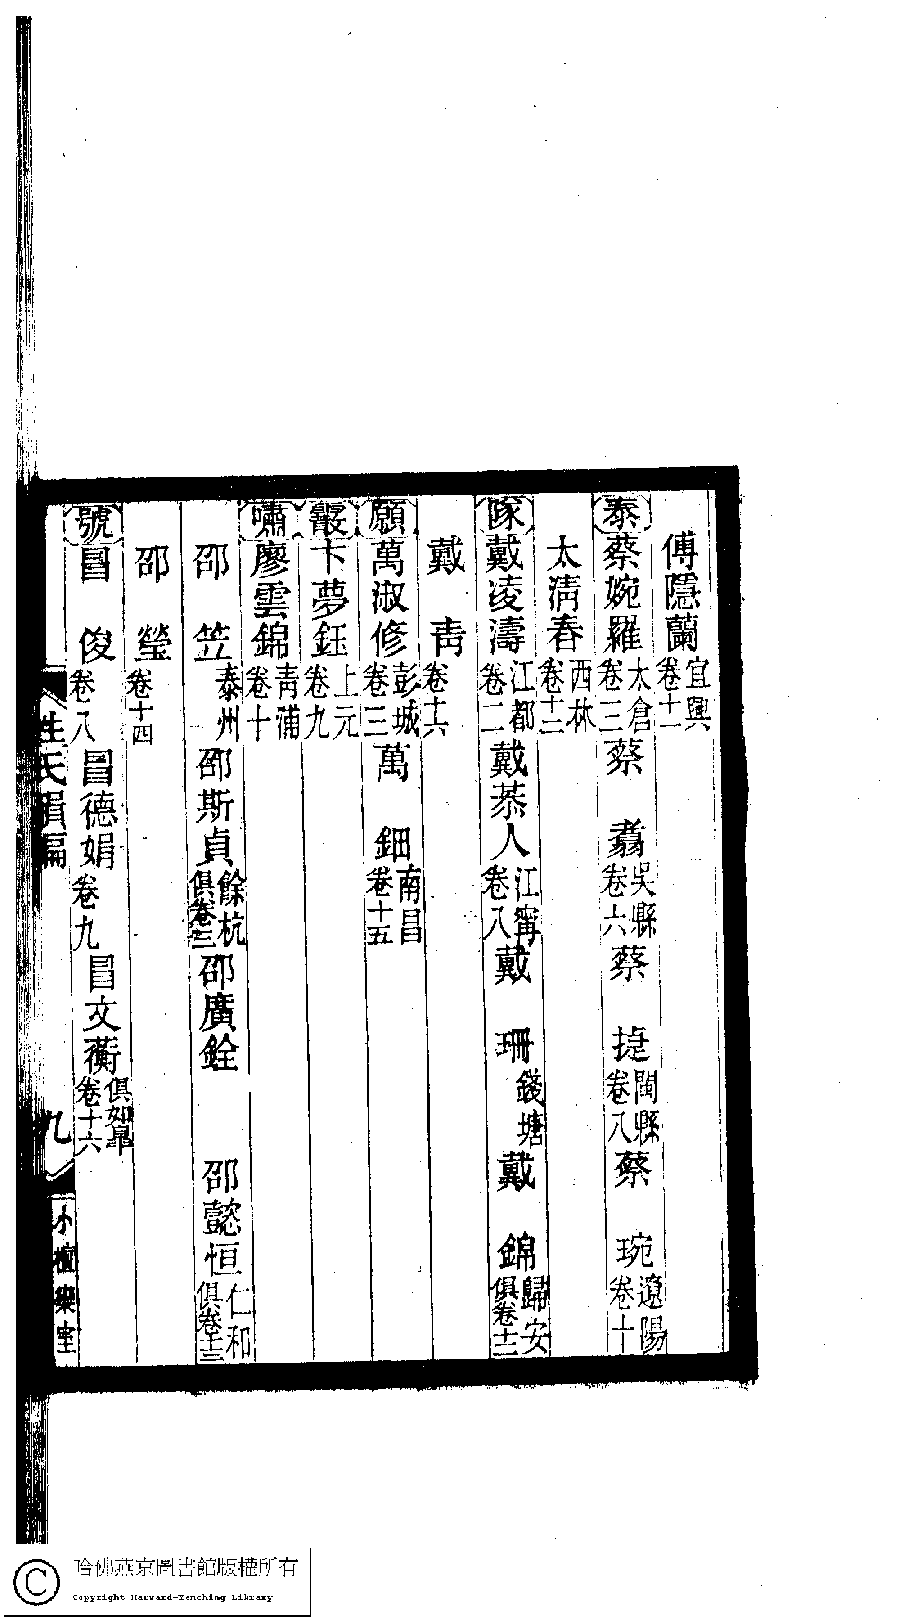 傅隱蘭宜興卷十一
泰蔡婉羅太倉卷三蔡翥吳縣卷六蔡捷閩縣卷八蔡琬遼陽卷十
太淸春西林卷十二
隊戴凌濤江都卷二戴恭人江寗卷八戴珊錢塘戴錦歸安俱卷十二
戴靑卷十六
願萬淑修彭城卷三萬鈿南昌卷十五
霰卞夢鈺上元卷九
嘯廖雲錦靑浦卷十
邵笠泰州邵斯貞餘杭俱卷三邵廣銓邵懿恒仁和俱卷十三
邵瑩卷十四
號冒俊卷八冒德娟卷九冒文蘅俱如臯卷十六
姓氏韻編
九
小檀欒室
哈佛燕京圖書館版權所有
Copyright Harvard-Yenching Library